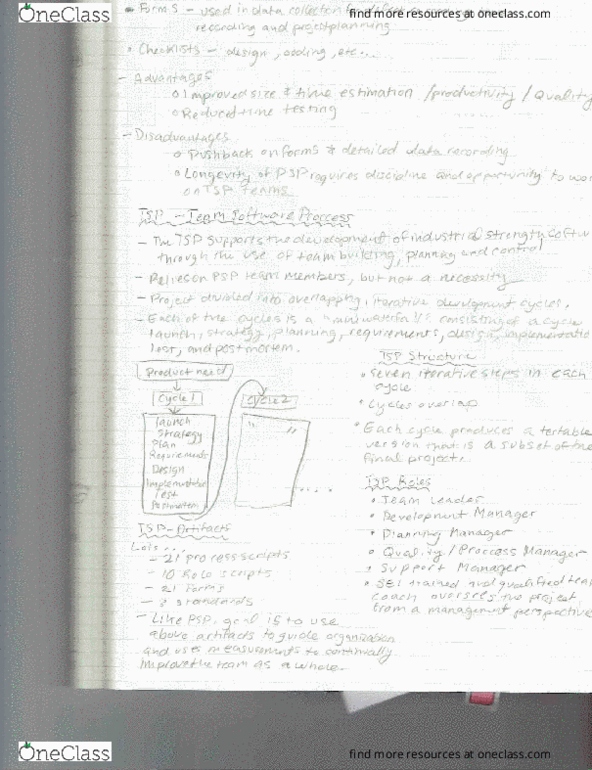 OneClass
find more resources at oneclass.com
Forms - used in data collection
recording and project planning
Checklists - design, coding, etc...
- Advantages
Improved size & time estimation / productivity / Quality
Reduced time testing
- Disadvantages
Pushback on forms & detailed data recording
Longevity of PSP requires discipline and opportunity to
on TSP teams
TSP - Team Software Process
- The TSP supports the development of industrial strength
through the use of team building, planning and control
- Relies on PSP team members, but not a necessity
- Project divided into overlapping, iterative development cycles.
- Each of the cycles is a "mini waterfall" consisting of a cycle
launch, strategy, planning, requirements, design, implementatio
test, and postmortem.
Product need
Cycle 1
Launch
Strategy
Plan
Requirements
Design
Implementation
Test
Postmortem
Cycle 2
" "
....
TSP Structure
Seven iterative steps in each
cycle
Cycles overlap
Each cycle produces a testable
version that is a subset of the
final project.
TSP Roles
Team Leader
Development Manager
Planning Manager
Quality / Process Manager
Support Manager
SEI trained and qualified team
coach oversees the project,
from a management perspective
TSP - Artifacts
Lots...
- 21 process scripts
- 10 Role scripts
- 21 forms
- 3 standards
- Like PSP, goal is to use
above artifacts to guide organization
and uses measurements to continually
improve the team as a whole.
OneClass
find more resources at oneclass.com